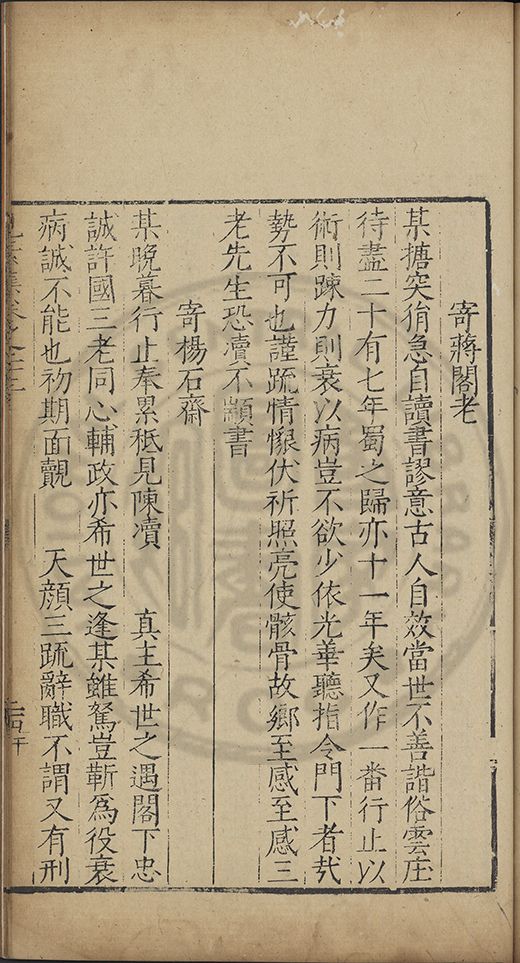 寄蔣閣老
某搪突狷急自讀書謬意古人自效當世不善諧俗雲庄
待盡二十有七年蜀之歸亦十一年矣又作一番行止以
術則踈力則衰以病豈不欲少依光華聽指令門下者㢤
勢不可也謹疏情愫伏祈照亮使骸骨故鄉至感至感三
老先生恐瀆不顓書
寄楊石齋
某晚暮行止奉累秪見陳瀆 真主希世之遇閣下忠
誠許國三老同心輔政亦希世之逢某雖駑豈靳爲役衰
病誠不能也初期面覿 天顔三疏辭職不謂又有刑